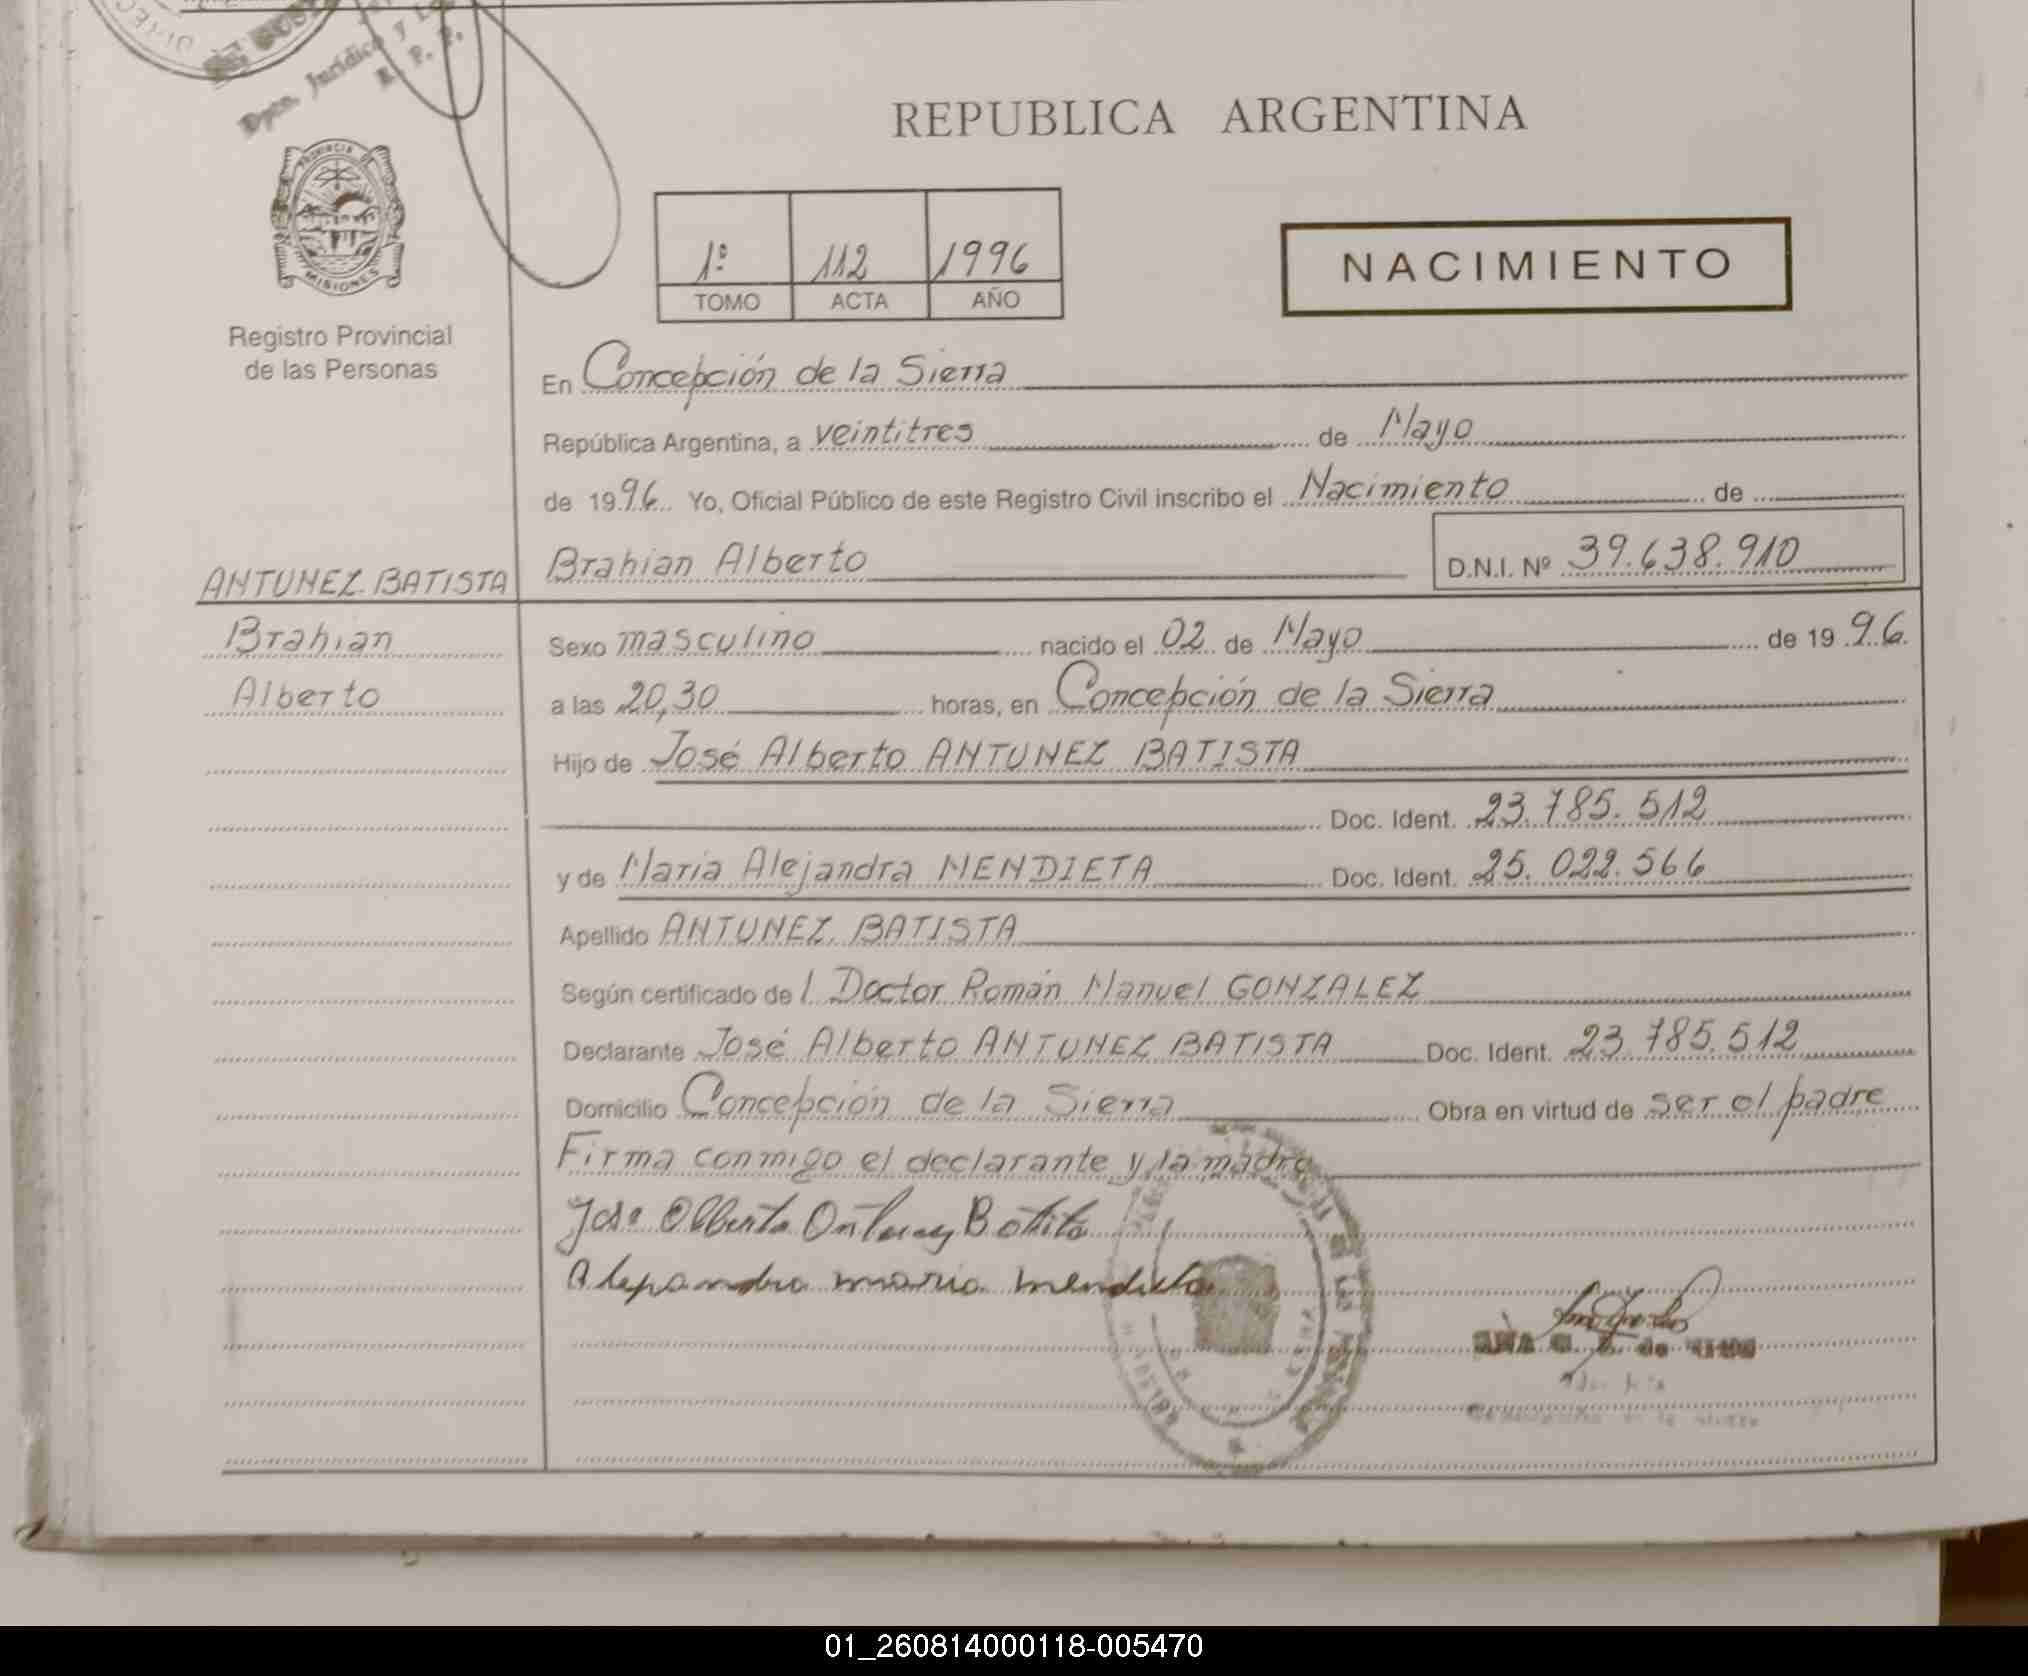 Dpto. Jurídico y
R. P. P.
REPUBLICA ARGENTINA
PROVINCIA DE
MISIONES
1º 112 1996
TOMO ACTA AÑO
NACIMIENTO
Registro Provincial
de las Personas
En Concepción de la Sierra
República Argentina, a veintitres de Mayo
de 1996. Yo, Oficial Público de este Registro Civil inscribo el Nacimiento de
ANTUNEZ BATISTA Brahian Alberto D.N.I. Nº 39.638.910
Brahian
Alberto
Sexo masculino nacido el 02 de Mayo de 1996.
a las 20,30 horas, en Concepción de la Sierra
Hijo de José Alberto ANTUNEZ BATISTA
Doc. Ident. 23.785.512
y de Maria Alejandra MENDIETA Doc. Ident. 25.022.566
Apellido ANTUNEZ BATISTA
Según certificado de l Doctor Román Manuel GONZALEZ
Declarante José Alberto ANTUNEZ BATISTA Doc. Ident. 23.785.512
Domicilio Concepción de la Sierra Obra en virtud de ser el padre
Firma conmigo el declarante y la madre
Jose Alberto Antunez Batista
Alejandra maria mendieta
01_260814000118-005470